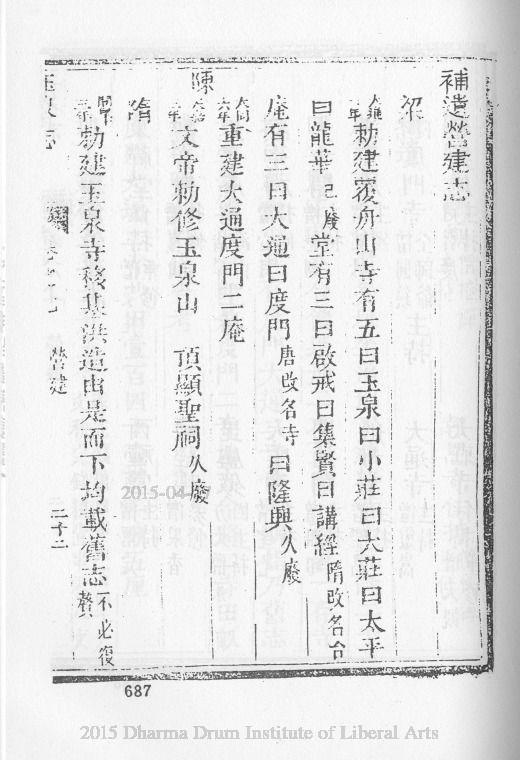 補遺營建志
梁
大通二年勅建覆舟山寺有五曰玉泉曰小莊曰大莊曰太平
曰龍華已廢堂有三曰啟戒曰集賢曰講經隋改名台
庵有三曰大通曰度門唐改名寺曰隆興久廢
六年重建大通度門二庵
陳
文帝勅修玉泉山 頂顯聖祠久廢
隋
勅建玉泉寺移基洪造由是而下均載舊志不必復贅
玉泉志 營建 二十二
2015-04
687
2015 Dharma Drum Institute of Liberal Arts